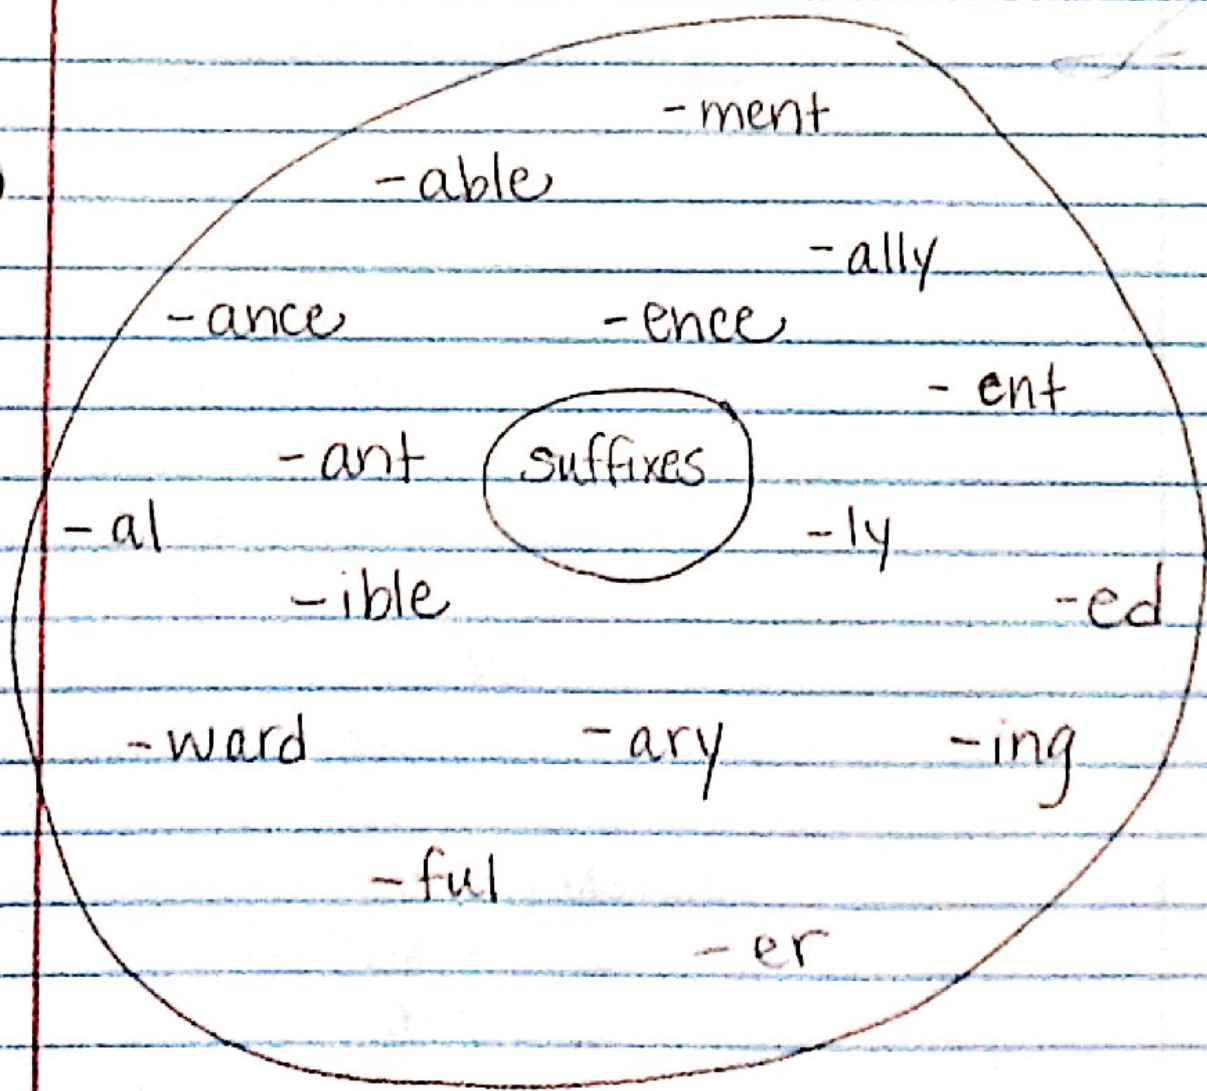 -ment
-able
-ally
-ance -ence
- ent
-ant suffixes
-al -ly
-ible -ed
-ward -ary -ing
-ful
- er